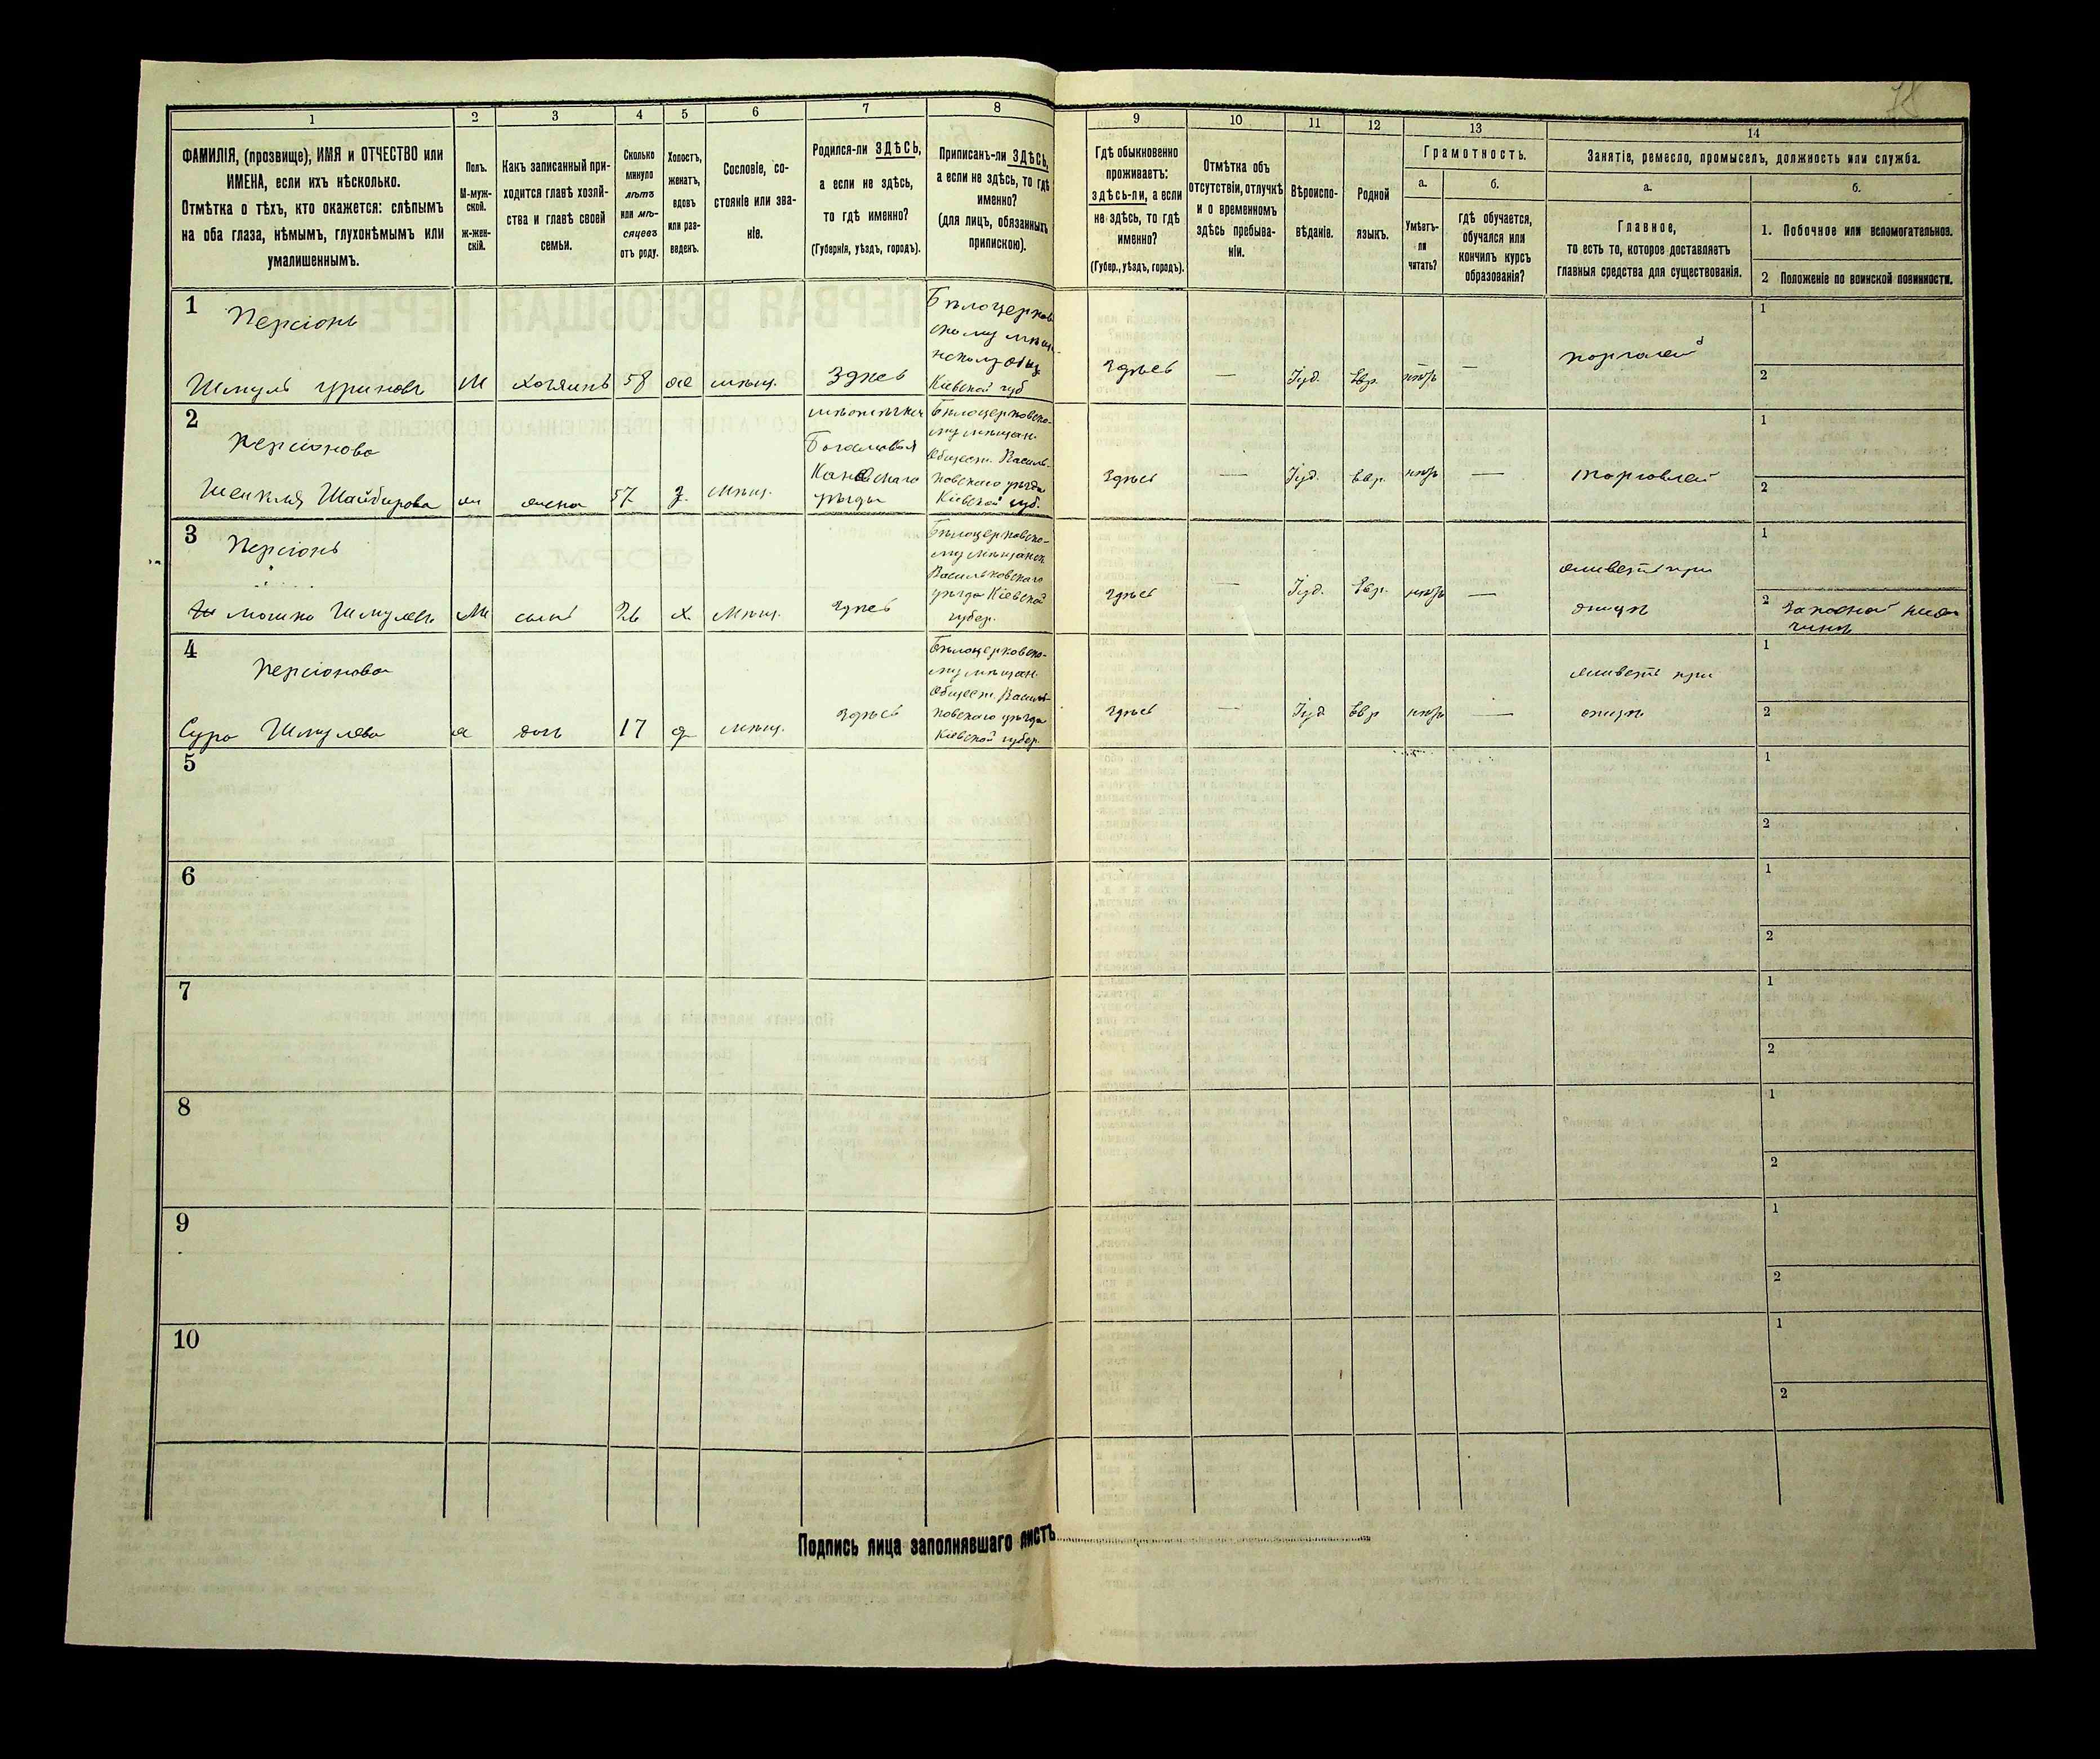 78
1
2
3
4
5
6
7
8
9
10
11
12
13
14
ФАМИЛІЯ, (прозвище), ИМЯ и ОТЧЕСТВО или
ИМЕНА, если ихъ нѣсколько.
Отмѣтка о тѣхъ, кто окажется: слѣпымъ
на оба глаза, нѣмымъ, глухонѣмымъ или
умалишеннымъ.
Полъ.
М-муж-
ской.
Ж-жен-
скій.
Какъ записанный при-
ходится главѣ хозяй-
ства и главѣ своей
семьи.
Сколько
минуло
лѣтъ
или мѣ-
сяцевъ
отъ роду.
Холостъ,
женатъ,
вдовъ
или раз-
веденъ.
Сословіе, со-
стояніе или зва-
ніе.
Родился-ли ЗДѢСЬ,
а если не здѣсь,
то гдѣ именно?
(Губернія, уѣздъ, городъ).
Приписанъ-ли ЗДѢСЬ,
а если не здѣсь, то гдѣ
именно?
(для лицъ, обязанныхъ
припискою).
Гдѣ обыкновенно
проживаетъ:
здѣсь-ли, а если
не здѣсь, то гдѣ
именно?
(Губер., уѣздъ, городъ).
Отмѣтка объ
отсутствіи, отлучкѣ
и о временномъ
здѣсь пребыва-
ніи.
Вѣроиспо-
вѣданіе.
Родной
языкъ.
Грамотность.
а.
Умѣетъ-
ли
читать?
б.
гдѣ обучается,
обучался или
кончилъ курсъ
образованія?
Занятіе, ремесло, промыселъ, должность или служба.
а.
Главное,
то есть то, которое доставляетъ
главныя средства для существованія.
б.
1. Побочное или вспомогательное.
2 Положеніе по воинской повинности.
1
Персіонъ
Шмуль Уриновъ
М
хозяинъ
58
ж
мѣщ.
Здѣсь
Бѣлоцерков
скому мѣщ
Кіевской губ
Здѣсь
—
Іуд.
Евр.
—
торговлей
1
2
2
Персіонова
Шейбирова
ж
жена
57
з.
мѣщ.
Каневскаго
уѣзда
Бѣлоцерковско-
му мѣщан.
Общест. Василь-
ковскаго уѣзда
Кіевской губ.
Здѣсь
—
Іуд.
Евр.
—
торговлей
1
2
3
Персіонъ
Мошко Шмулевъ
М
сынъ
26
х.
мѣщ.
Здѣсь
Бѣлоцерковско-
му мѣщанск
Васильковскаго
уѣзда Кіевской
губер.
Здѣсь
—
Іуд.
Евр.
—
живетъ при
отцѣ
1
2
4
Персіонова
Сура Шмулева
ж
дочь
17
д
мѣщ.
Здѣсь
Бѣлоцерковско-
му мѣщан.
Общест. Василь-
ковскаго уѣзда
Кіевской губер.
Здѣсь
—
Іуд
Евр
—
живетъ при
отцѣ
1
2
5
1
2
6
1
2
7
1
2
8
1
2
9
1
2
10
1
2
Подпись лица заполнявшаго листъ